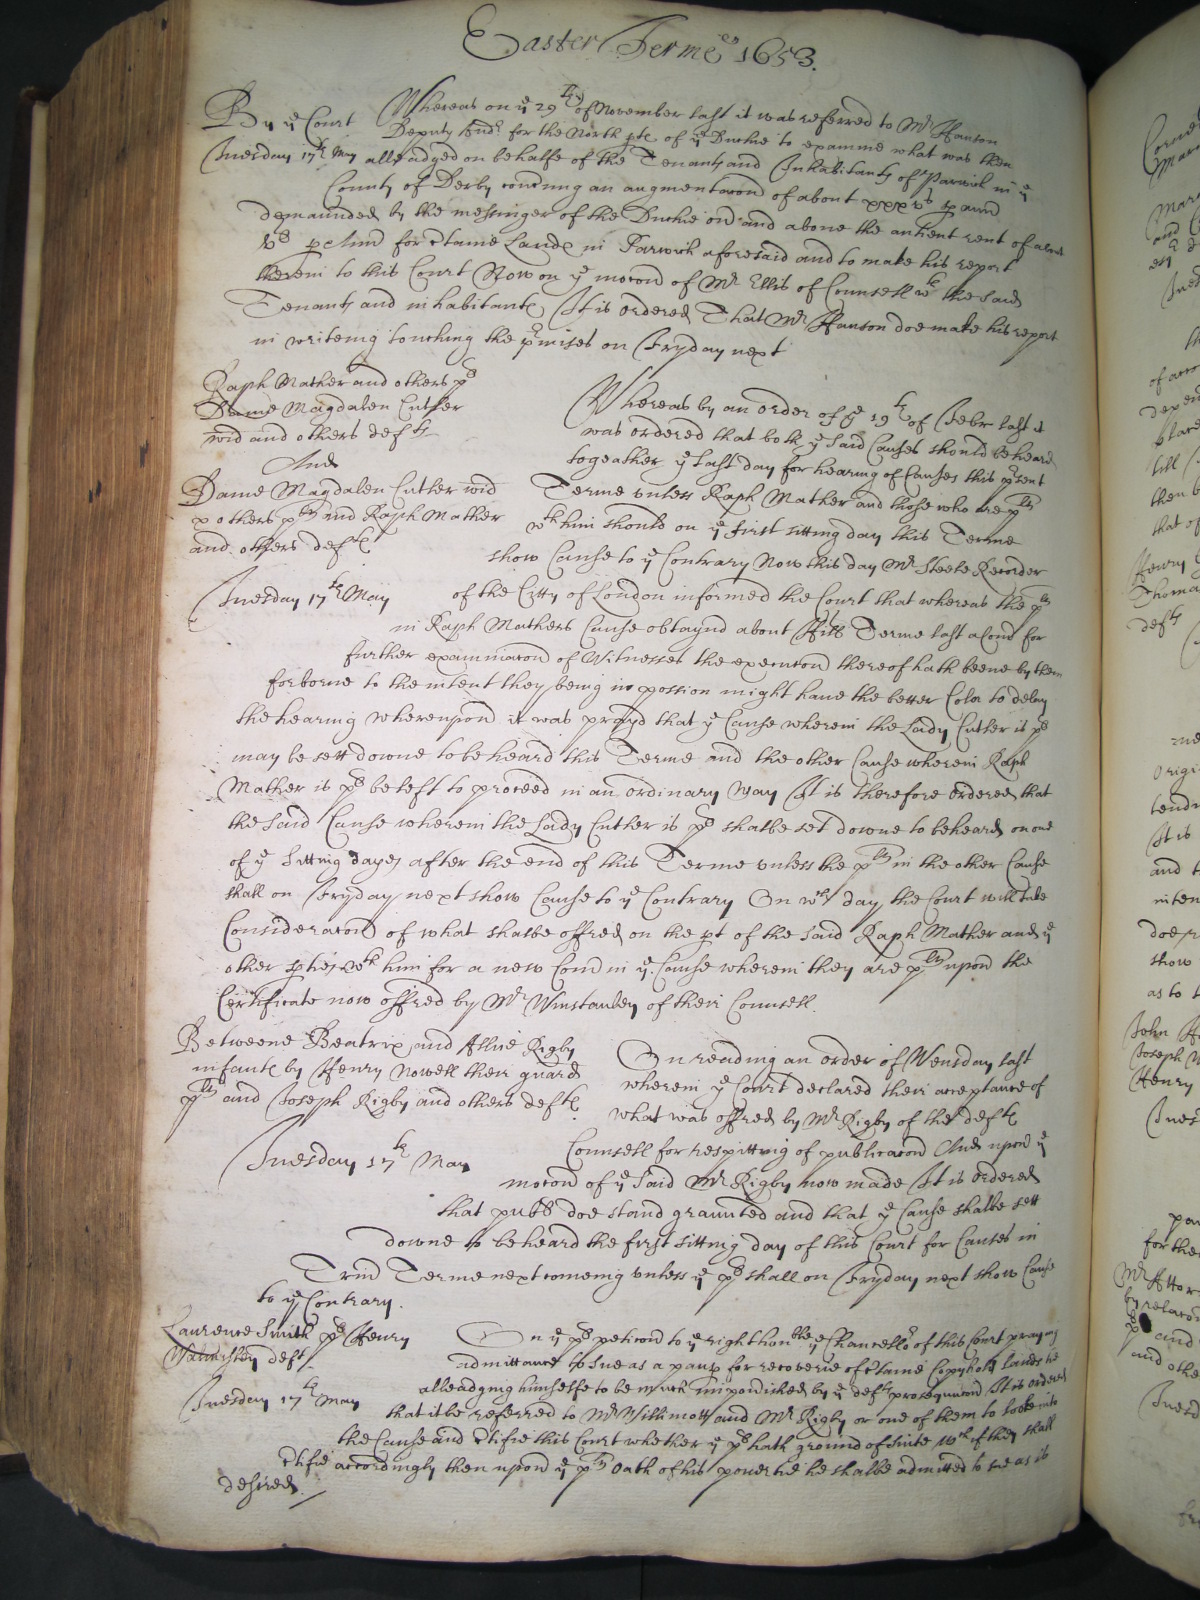 Easter Terme 1653.
By ye Court
Whereas on ye 29th of November last it was referred to Mr Hanson
Deputy for the North pte of ye Duchie to examine what was then
Tuesday 17th May alleadged on behalfe of the Tenants and Inhabitants of Parwich in ye
County of Derby touching an augmentacond of about xxx vs p annd
demaunded by the messinger of the Duchie over and above the antient rent of about
vs p Annd for Certaine Lands in Parwich aforesaid and to make his report
therein to this Court Now on ye mocond of Mr Ellis of Counsell wth the said
Tenants and inhabitants It is ordered That Mr Hanson doe make his report
in writeing touching the pmises on Fryday next
Raph Mather and others plts
Dame Magdalen Cutler
wid and others defts
And
Dame Magdalen Cutler wid
& others plts and Raph Mather
and others defts
Tuesday 17th May
Whereas by an order of ye 19th of Febr last it
was ordered that both ye said Causes should be heard
togeather ye last day for hearing of Causes this psent
Terme unless Raph Mather and those who are plts
wth him should on ye first sitting day this Terme
show Cause to ye Contrary Now this day Mr Steele Recorder
of the Citty of London informed the Court that whereas the plts
in Raph Mathers Cause obtaynd about Hill Terme last a Comd for
further examinacond of Witnesses the execucond thereof hath beene by them
forborne to the intent they being in possion might have the better Color to delay
the hearing whereupond it was prayd that ye Cause wherein the Lady Cutler is plt
may be sett downe to be heard this Terme and the other Cause wherein Raph
Mather is plt be left to proceed in an ordinary way It is therefore ordered that
the said Cause wherein the Lady Cutler is plt shalbe set downe to be heard on one
of ye Sitting dayes after the end of this Terme unless the plts in the other Cause
shall on Fryday next show Cause to ye Contrary On wch day the Court will take
Consideracond of what shalbe offred on the pt of the said Raph Mather and ye
other pties wth him for a new Comd in ye Cause wherein they are plts upon the
Certificate now offred by Mr Winstanley of their Counsell.
Betweene Beatrix and Allice Rigby
infants by Henry Nowell their guard
plts and Joseph Rigby and others defts.
Tuesday 17th May
On reading an order of Wensday last
wherein ye Court declared their acceptance of
what was offred by Mr Rigby of the defts
Counsell for respitting of publicacond And upon ye
mocond of ye said Mr Rigby now made It is ordered
that publ doe stand graunted and that ye Cause shalbe sett
downe to be heard the first sitting day of this Court for Causes in
Trid Terme next comeing unless ye plts shall on Fryday next show Cause
to ye Contrary.
Laurence Smith plt Henry
deft.
Tuesday 17th May
On ye plts peticond to ye right honble ye Chancellor of this Court praying
admittance to sue as a paup for recoverie of Ctaine Copyhold Lands he
alleadging himselfe to be much impovished by ye defts prosequucond It is ordered
that it be referred to Mr Willimott and Mr Rigby or one of them to looke into
the Cause and Ctifie this Court whether ye plt hath ground of suite wch if they shall
Ctifie accordingly then upon ye plts oath of his povertie he shalbe admitted to sue as is
desired.